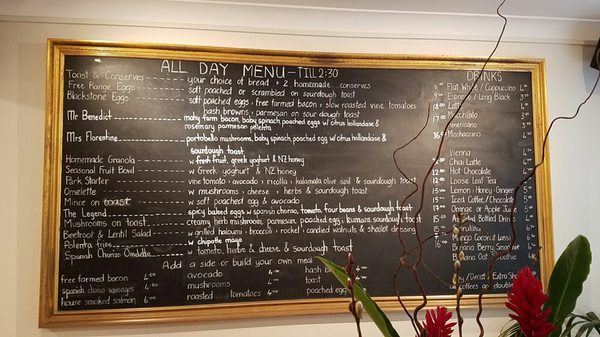 ALL DAY MENU - TILL 2:30
Toast & Conserves your choice of bread + 2 homemade conserves
Free Range Eggs soft poached or scrambled on sourdough toast
Blackstone Eggs soft poached eggs, free formed bacon, slow roasted vine tomatoes
hash browns, parmesan on sourdough toast
Mr Benedict bacon, baby spinach, poached egg w/ citrus hollandaise &
rosemary parmesan
Mrs Florentine portobello mushrooms, baby spinach, poached egg w/ citrus hollandaise &
sourdough toast
Homemade Granola w fresh fruit, greek yoghurt & NZ honey
Seasonal Fruit Bowl w Greek yoghurt & NZ honey
Park Starter vine tomato, avocado, ricotta, kalamata olive salt & sourdough toast
Omelette w mushrooms, cheese, herbs & sourdough toast
Mince on toast w soft poached egg & avocado
The Legend spicy baked eggs w spanish chorizo, tomato, four beans & sourdough toast
Mushrooms on toast creamy herb mushrooms, parmesan, poached egg, sourdough toast
Beetroot & Lentil Salad w grilled haloumi, broccoli, rocket, candied walnuts & shallot dressing
Polenta fries w chipotle mayo
Spanish Chorizo Omelette w tomato, herbs & cheese & sourdough toast
Add a side or build your own meal
free formed bacon 4.50 avocado hash
spanish chorizo sausages mushrooms toast
house smoked salmon 6.00 roasted tomatoes 4.00 poached egg
DRINKS
Flat White / Cappuccino
Espresso / Long Black
Latte
Macchiato
Americano
Mochaccino
Vienna
Chai Latte
Hot Chocolate
Loose Leaf Tea
Lemon, Honey, Ginger
Iced Coffee
Orange or Apple Juice
Bottled Drink
Mango Coconut & Lime
Banana Berry
Banana Oat
Soy / Decaf / Extra Shot